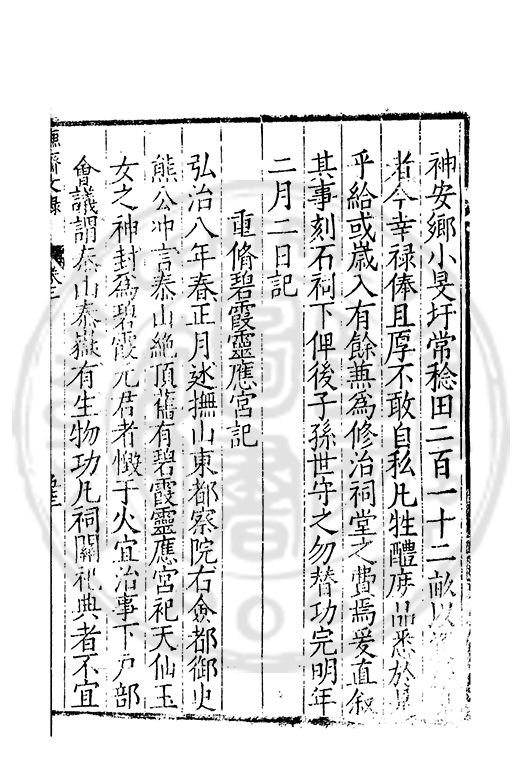 神安鄉小旻圩常稔田二百一十二畝以
者今幸祿俸且厚不敢自私凡牲醴庶品悉於是
乎給或歲入有餘兼為修治祠堂之費焉爰直叙
其事刻石祠下俾後子孫世守之勿替功完明年
二月二日記
重脩碧霞靈應宮記
弘治八年春正月巡撫山東都察院右僉都御史
熊公冲言泰山絶頂舊有碧霞靈應宮祀天仙玉
女之神封為碧霞元君者燬于火宜治事下户部
會議謂泰山泰嶽有生物功凡祠關祀典者不宜
齋文錄
卷三